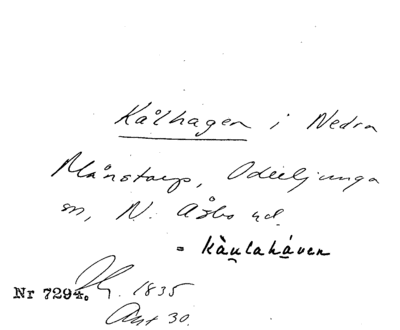 Kålhagen i Nedra
Månstorp, Oderljunga
sn, N. Åsbo hd.
= kàulaháven
Nr 7294. 1835
Akt 30.